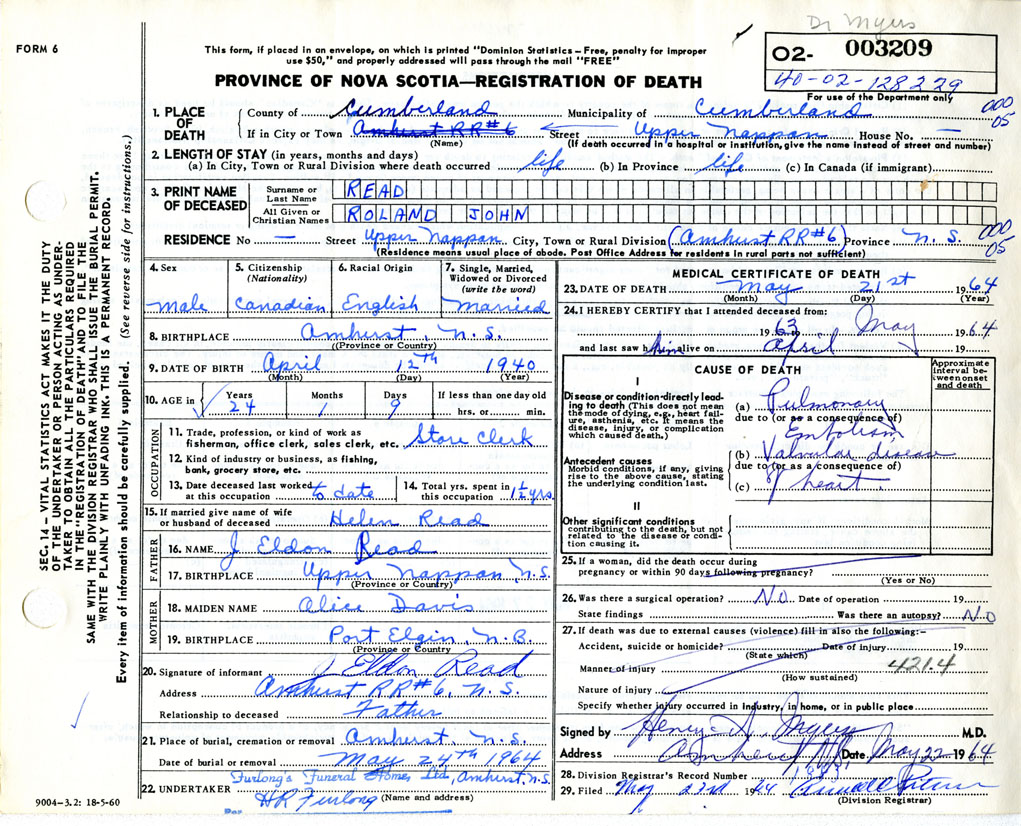 Dr Myers
FORM 6
This form, if placed in an envelope, on which is printed "Dominion Statistics – Free, penalty for improper
use $50," and properly addressed will pass through the mail "FREE"
02- 003209
40-02-128229
For use of the Department only
PROVINCE OF NOVA SCOTIA—REGISTRATION OF DEATH
1. PLACE OF DEATH County of Cumberland Municipality of Cumberland 000 05
If in City or Town Amherst RR#6 Street Upper Nappan House No. —
(Name) (If death occurred in a hospital or institution, give the name instead of street and number)
2. LENGTH OF STAY (in years, months and days)
(a) In City, Town or Rural Division where death occurred life (b) In Province life (c) In Canada (if immigrant)
3. PRINT NAME OF DECEASED Surname or Last Name READ
All Given or Christian Names ROLAND JOHN
RESIDENCE No — Street Upper Nappan City, Town or Rural Division (Amhurst RR#6) Province N. S. 000 05
(Residence means usual place of abode. Post Office Address for residents in rural parts not sufficient)
4. Sex 5. Citizenship (Nationality) 6. Racial Origin 7. Single, Married, Widowed or Divorced (write the word)
male Canadian English Married
8. BIRTHPLACE Amhurst, N.S.
(Province or Country)
9. DATE OF BIRTH April 12th 1940
(Month) (Day) (Year)
10. AGE in Years Months Days If less than one day old
24 1 9 hrs. or min.
OCCUPATION
11. Trade, profession, or kind of work as
fisherman, office clerk, sales clerk, etc. Store Clerk
12. Kind of industry or business, as fishing,
bank, grocery store, etc.
13. Date deceased last worked at this occupation to date 14. Total yrs. spent in this occupation 1 1/2 yrs.
15. If married give name of wife
or husband of deceased Helen Read
FATHER
16. NAME J Eldon Read
17. BIRTHPLACE Upper Nappan, N.S.
(Province or Country)
MOTHER
18. MAIDEN NAME Alice Davis
19. BIRTHPLACE Port Elgin, N.B.
(Province or Country)
20. Signature of informant J Eldon Read
Address Amhurst RR#6, N.S.
Relationship to deceased Father
21. Place of burial, cremation or removal Amhurst, N.S.
Date of burial or removal May 24th 1964
Furlong's Funeral Homes Ltd, Amhurst, N.S.
22. UNDERTAKER H R Furlong (Name and address)
Per
9004–3.2: 18-5-60
MEDICAL CERTIFICATE OF DEATH
23. DATE OF DEATH May 21st 1964
(Month) (Day) (Year)
24. I HEREBY CERTIFY that I attended deceased from:
1963 May 1964
and last saw him alive on April 19
CAUSE OF DEATH
Approximate interval between onset and death
I
Disease or condition directly leading to death (This does not mean the mode of dying, e.g., heart failure, asthenia, etc. It means the disease, injury, or complication which caused death.)
(a) Pulmonary
due to (or as a consequence of)
Embolism
Antecedent causes
Morbid conditions, if any, giving rise to the above cause, stating the underlying condition last.
(b) Valvular disease
due to (or as a consequence of)
(c) of heart.
II
Other significant conditions
contributing to the death, but not related to the disease or condition causing it.
25. If a woman, did the death occur during
pregnancy or within 90 days following pregnancy?
(Yes or No)
26. Was there a surgical operation? NO Date of operation 19
State findings Was there an autopsy? NO
27. If death was due to external causes (violence) fill in also the following:–
Accident, suicide or homicide? Date of injury 19
(State which) 421.4
Manner of injury
(How sustained)
Nature of injury
Specify whether injury occurred in industry, in home, or in public place
Signed by Henry A. Myers M.D.
Address Amherst NS Date May 22 1964
28. Division Registrar's Record Number
29. Filed May 22nd 1964
(Division Registrar)
SEC. 14 – VITAL STATISTICS ACT MAKES IT THE DUTY
OF THE UNDERTAKER OR PERSON ACTING AS UNDER-
TAKER TO OBTAIN ALL THE PARTICULARS REQUIRED
IN THE "REGISTRATION OF DEATH" AND TO FILE THE
SAME WITH THE DIVISION REGISTRAR WHO SHALL ISSUE THE BURIAL PERMIT.
WRITE PLAINLY WITH UNFADING INK. THIS IS A PERMANENT RECORD.
Every item of information should be carefully supplied. (See reverse side for instructions.)